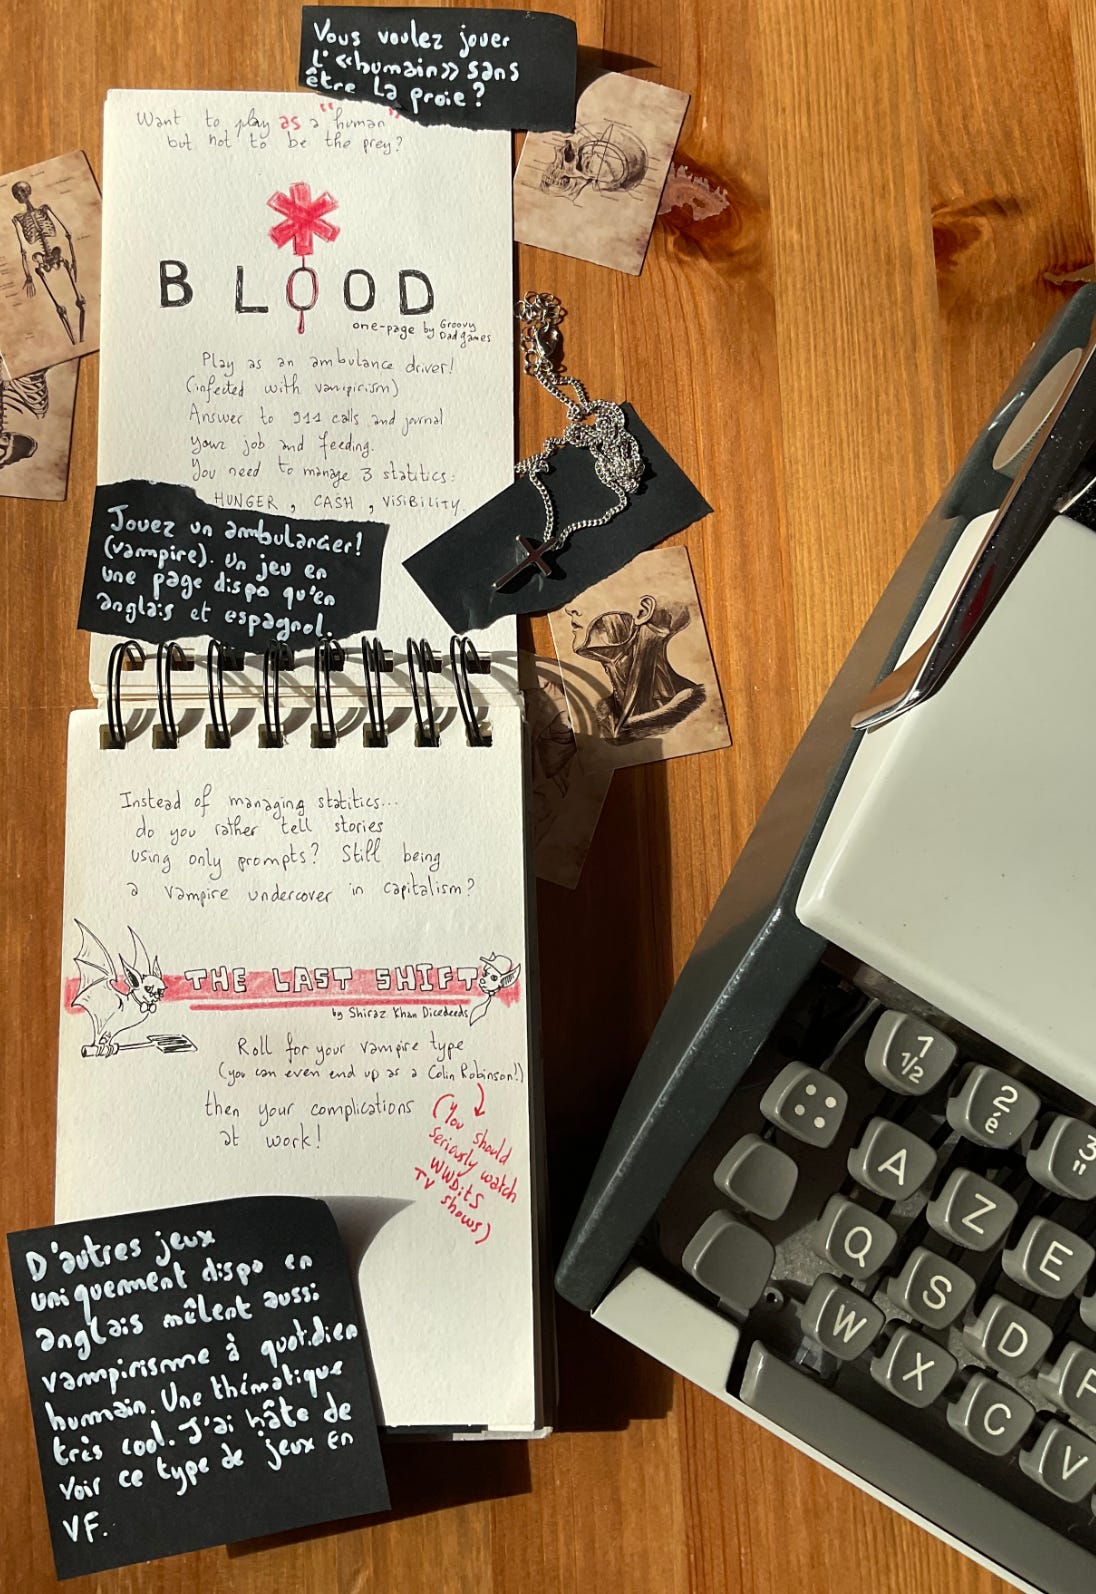 Vous voulez jouer
l'«humain» sans
être la proie?
Want to play as a "human"
but not to be the prey?
BLOOD
one-page by Groovy
Dad games
Play as an ambulance driver!
(infected with vampirism)
Answer to 911 calls and journal
your job and feeding.
You need to manage 3 statitics:
HUNGER, CASH, VISIBILITY.
Jouez un ambulancier!
(vampire). Un jeu en
une page dispo qu'en
anglais et espagnol.
Instead of managing statitics...
do you rather tell stories
using only prompts? Still being
a vampire undercover in capitalism?
THE LAST SHIFT
by Shiraz Khan Dicedeeds
Roll for your vampire type
(you can even end up as a Colin Robinson!)
then your complications
at work!
(You should
seriously watch
WWDitS
TV shows)
D'autres jeux
uniquement dispo en
anglais mêlent aussi
vampirisme à quotidien
humain. Une thématique
très cool. J'ai hâte de
voir ce type de jeux en
VF.
1
1/2
2
é
3
"
A
Z
E
Q
S
D
F
W
X
C
V